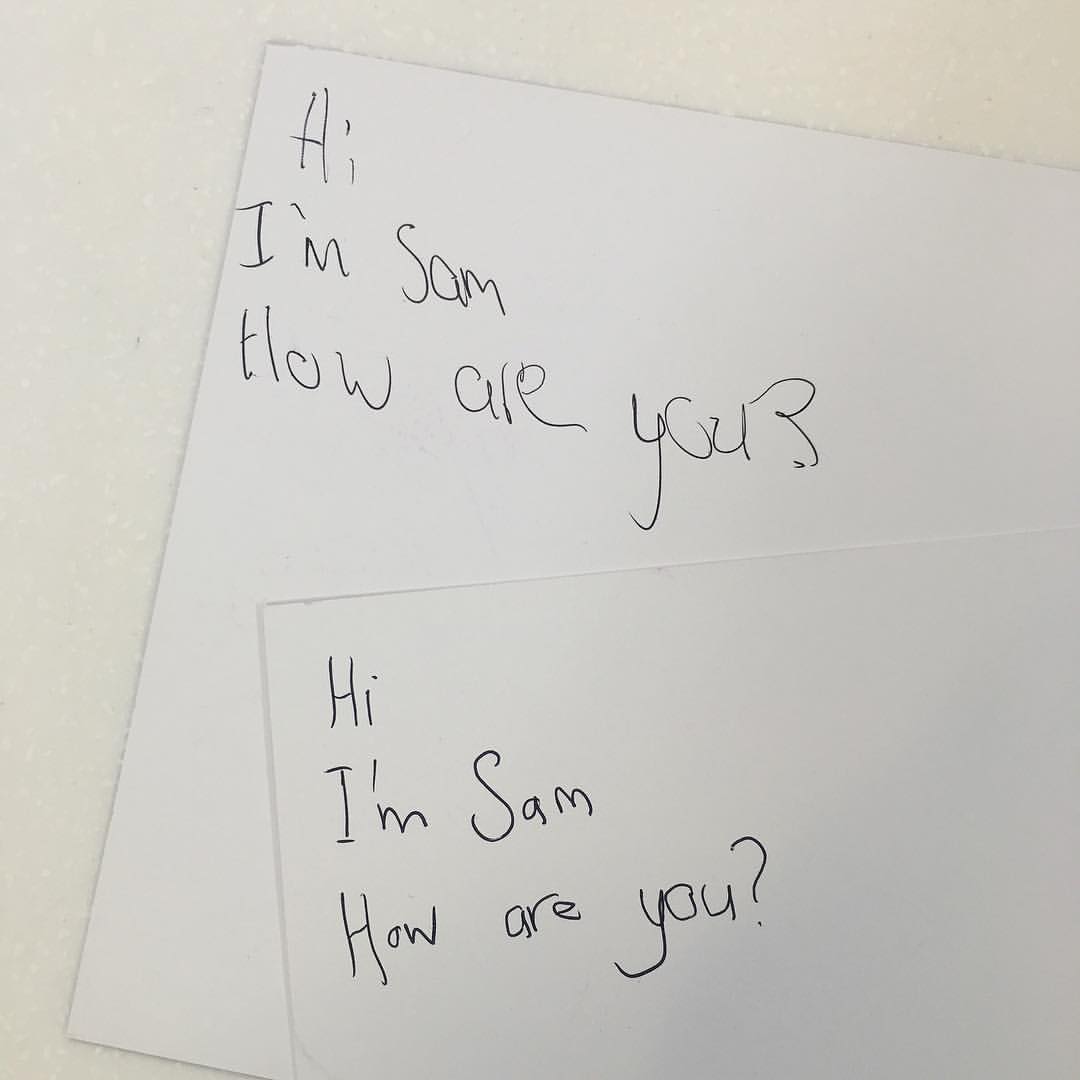 Hi
I'm Sam
How are you?
Hi
I'm Sam
How are you?